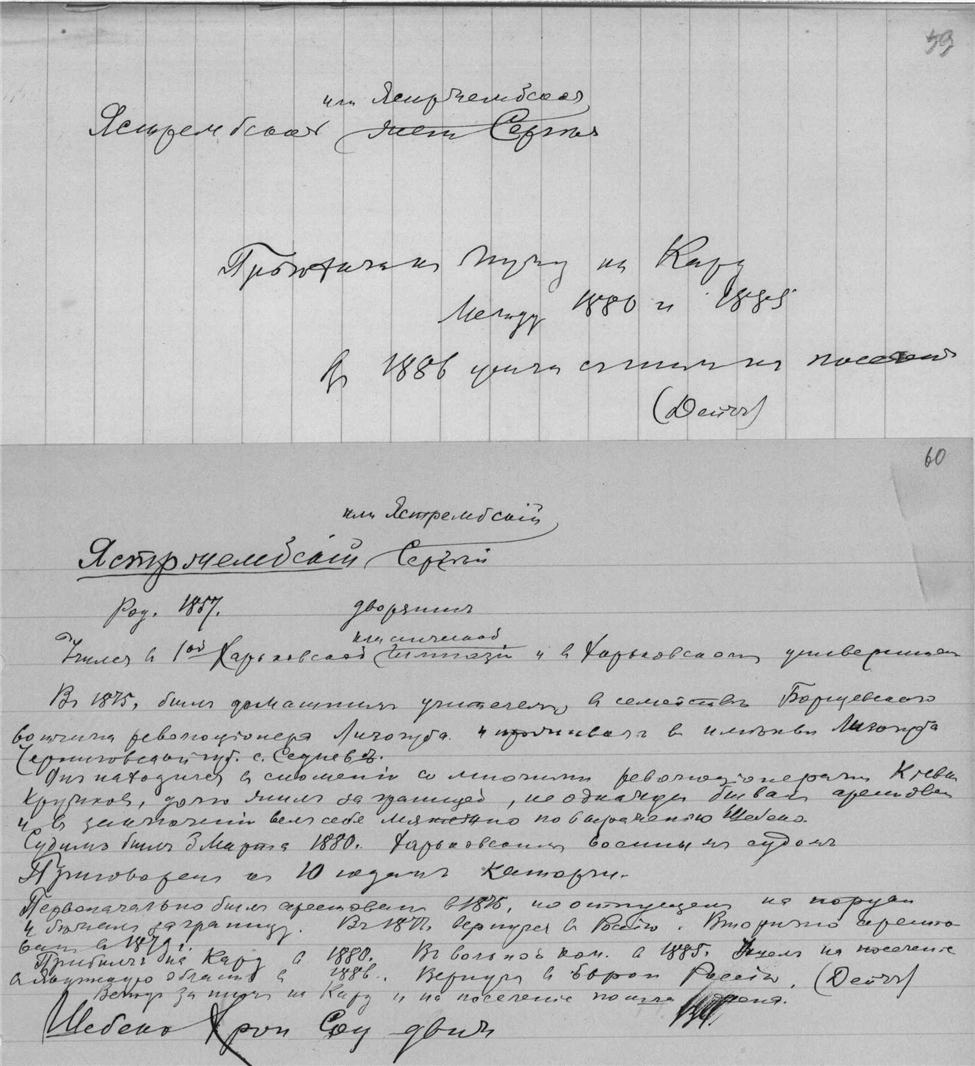 59
или Ястржембская
Ястрембская жена Сергея
Прибыла к мужу на Кару
Между 1880 и 1885
В 1886 ушла с ним на поселение
(Дейч)
60
или Ястремвский
Ястржембскій Сергѣй
Род. 1857. дворянин
классической
Учился в 1ой Харьковской гимназіи и в Харьковском университете
В 1875, был домашним учителем в семействѣ Борщевского
революционера Лизогуба и проживал в имѣніи Лизогуба
Черниговской губ. с. Седнев.
Он находился в сношеніи со многими революціонерами Кіева
кружков, долго жил за границей, не однажды бывал арестован
и в заключеніи вел себе мятежно по выраженію Шебеко.
Судим был 3 Марта 1880. Харьковским военным судом
Приговорен к 10 годам каторги.
Первоначально был арестован в 1875, но отпущен на поруки
и бежал за границу. В 1877 вернулся в Рос. Вторично аресто
ван в 1879 г.
Прибыл на Кару в 1880. В вольной ком. в 1885. Ушел на поселение
в Якутскую область в 1886. Вернулся в Европ Россію. (Дейч)
Вслед за ним на Кару и на поселение пошла жена.
Шебеко Хрон Соц движ